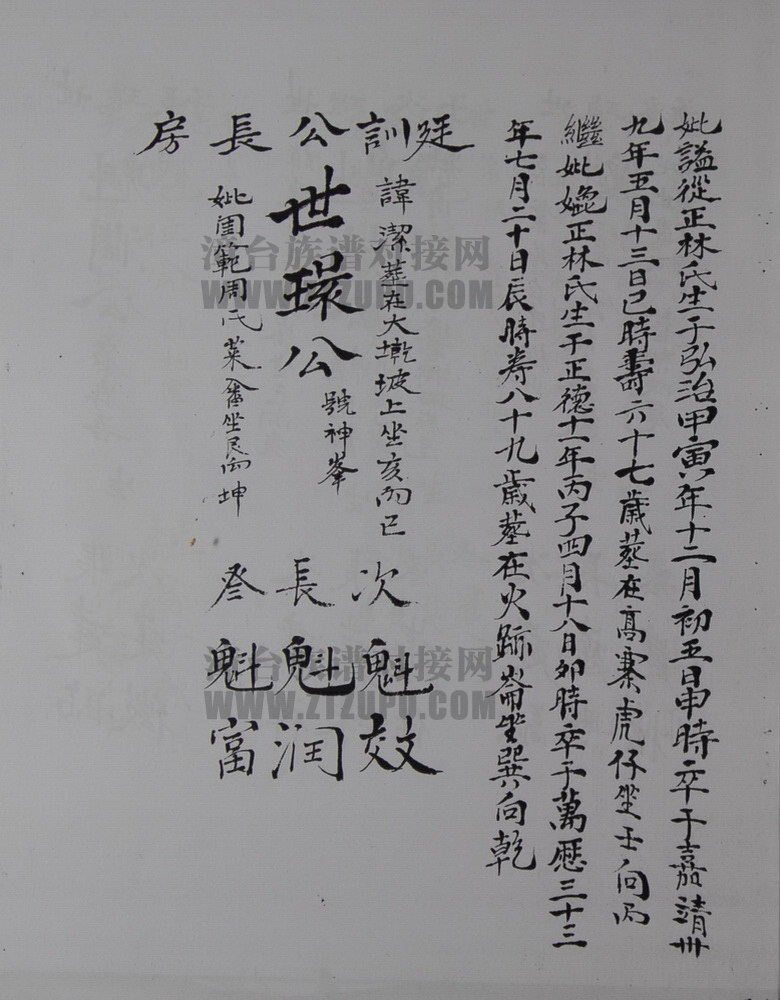 妣謚從正林氏生于弘治甲寅年十二月初五日申時卒于嘉靖卅
九年五月十三日巳時壽六十七歲葬在高寨虎仔坐壬向丙
繼妣媲正林氏生于正德十一年丙子四月十八日卯時卒于萬歷三十三
年七月二十日辰時壽八十九歲葬在火跡崙坐巽向乾
廷訓公長房
諱潔葬在大墘坡上坐亥向巳
世璟公
號神峯
妣閨範周氏葉畬坐艮向坤
次魁效
長魁潤
叁魁富
漳台族谱对接网
WWW.ZTZUPU.COM
漳台族谱对接网
WWW.ZTZUPU.COM